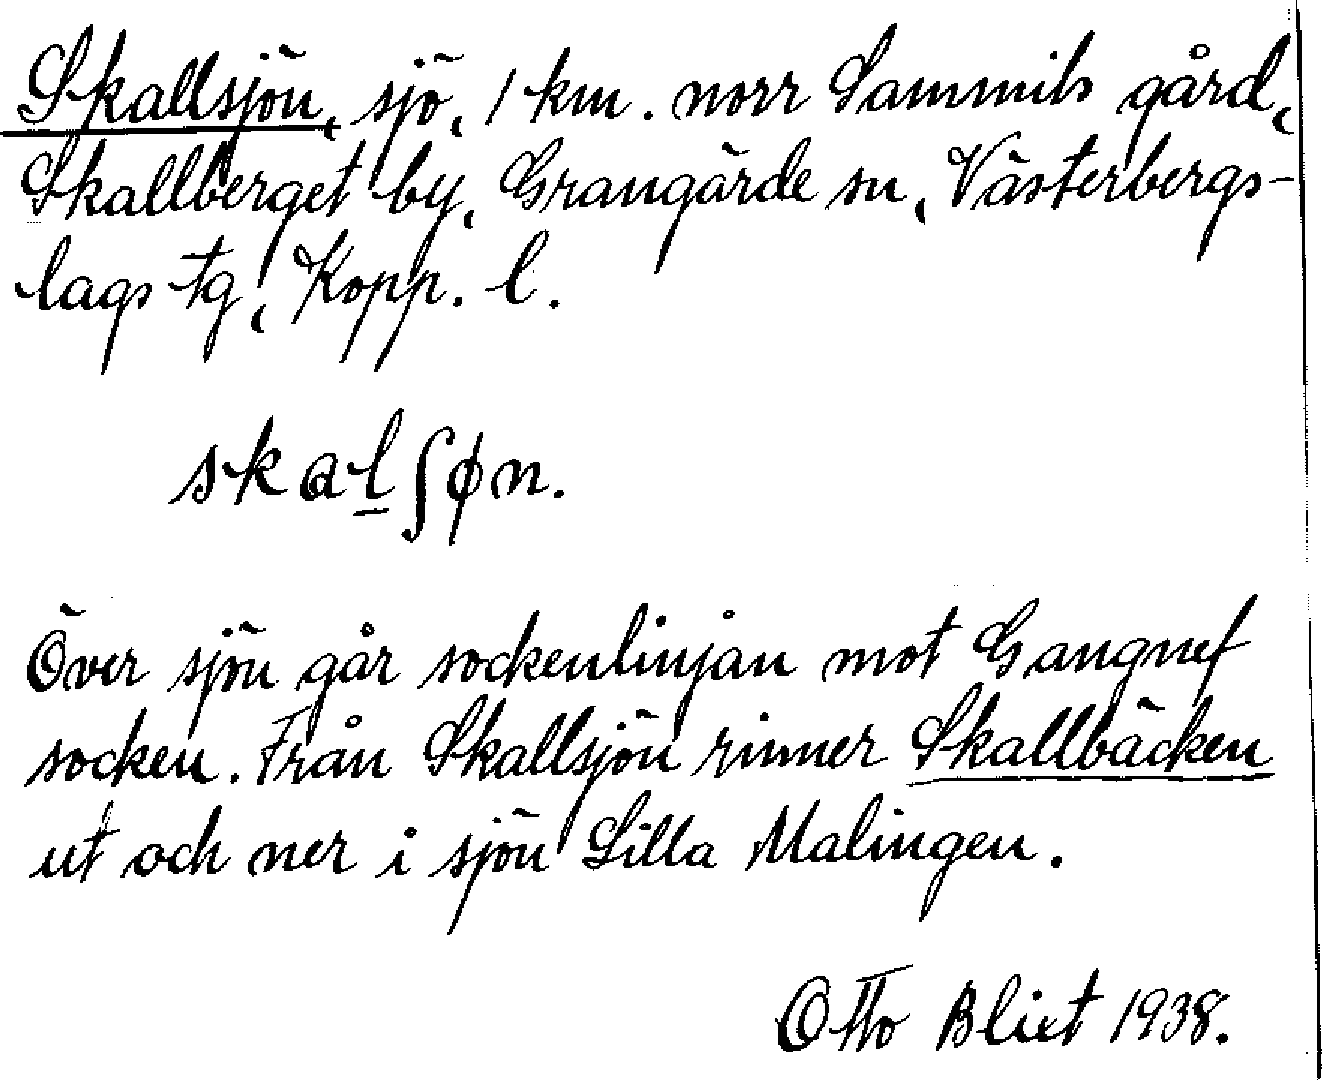 Skallsjön, sjö, 1 km. norr Sammils gård,
Skallberget by, Grangärde sn, Västerbergs-
lags tg, Kopp. l.
skaḻʃøn.
Över sjön går sockenlinjan mot Gangnef
socken. Från Skallsjön rinner Skallbäcken
ut och ner i sjön Lilla Malingen.
Otto Blixt 1938.